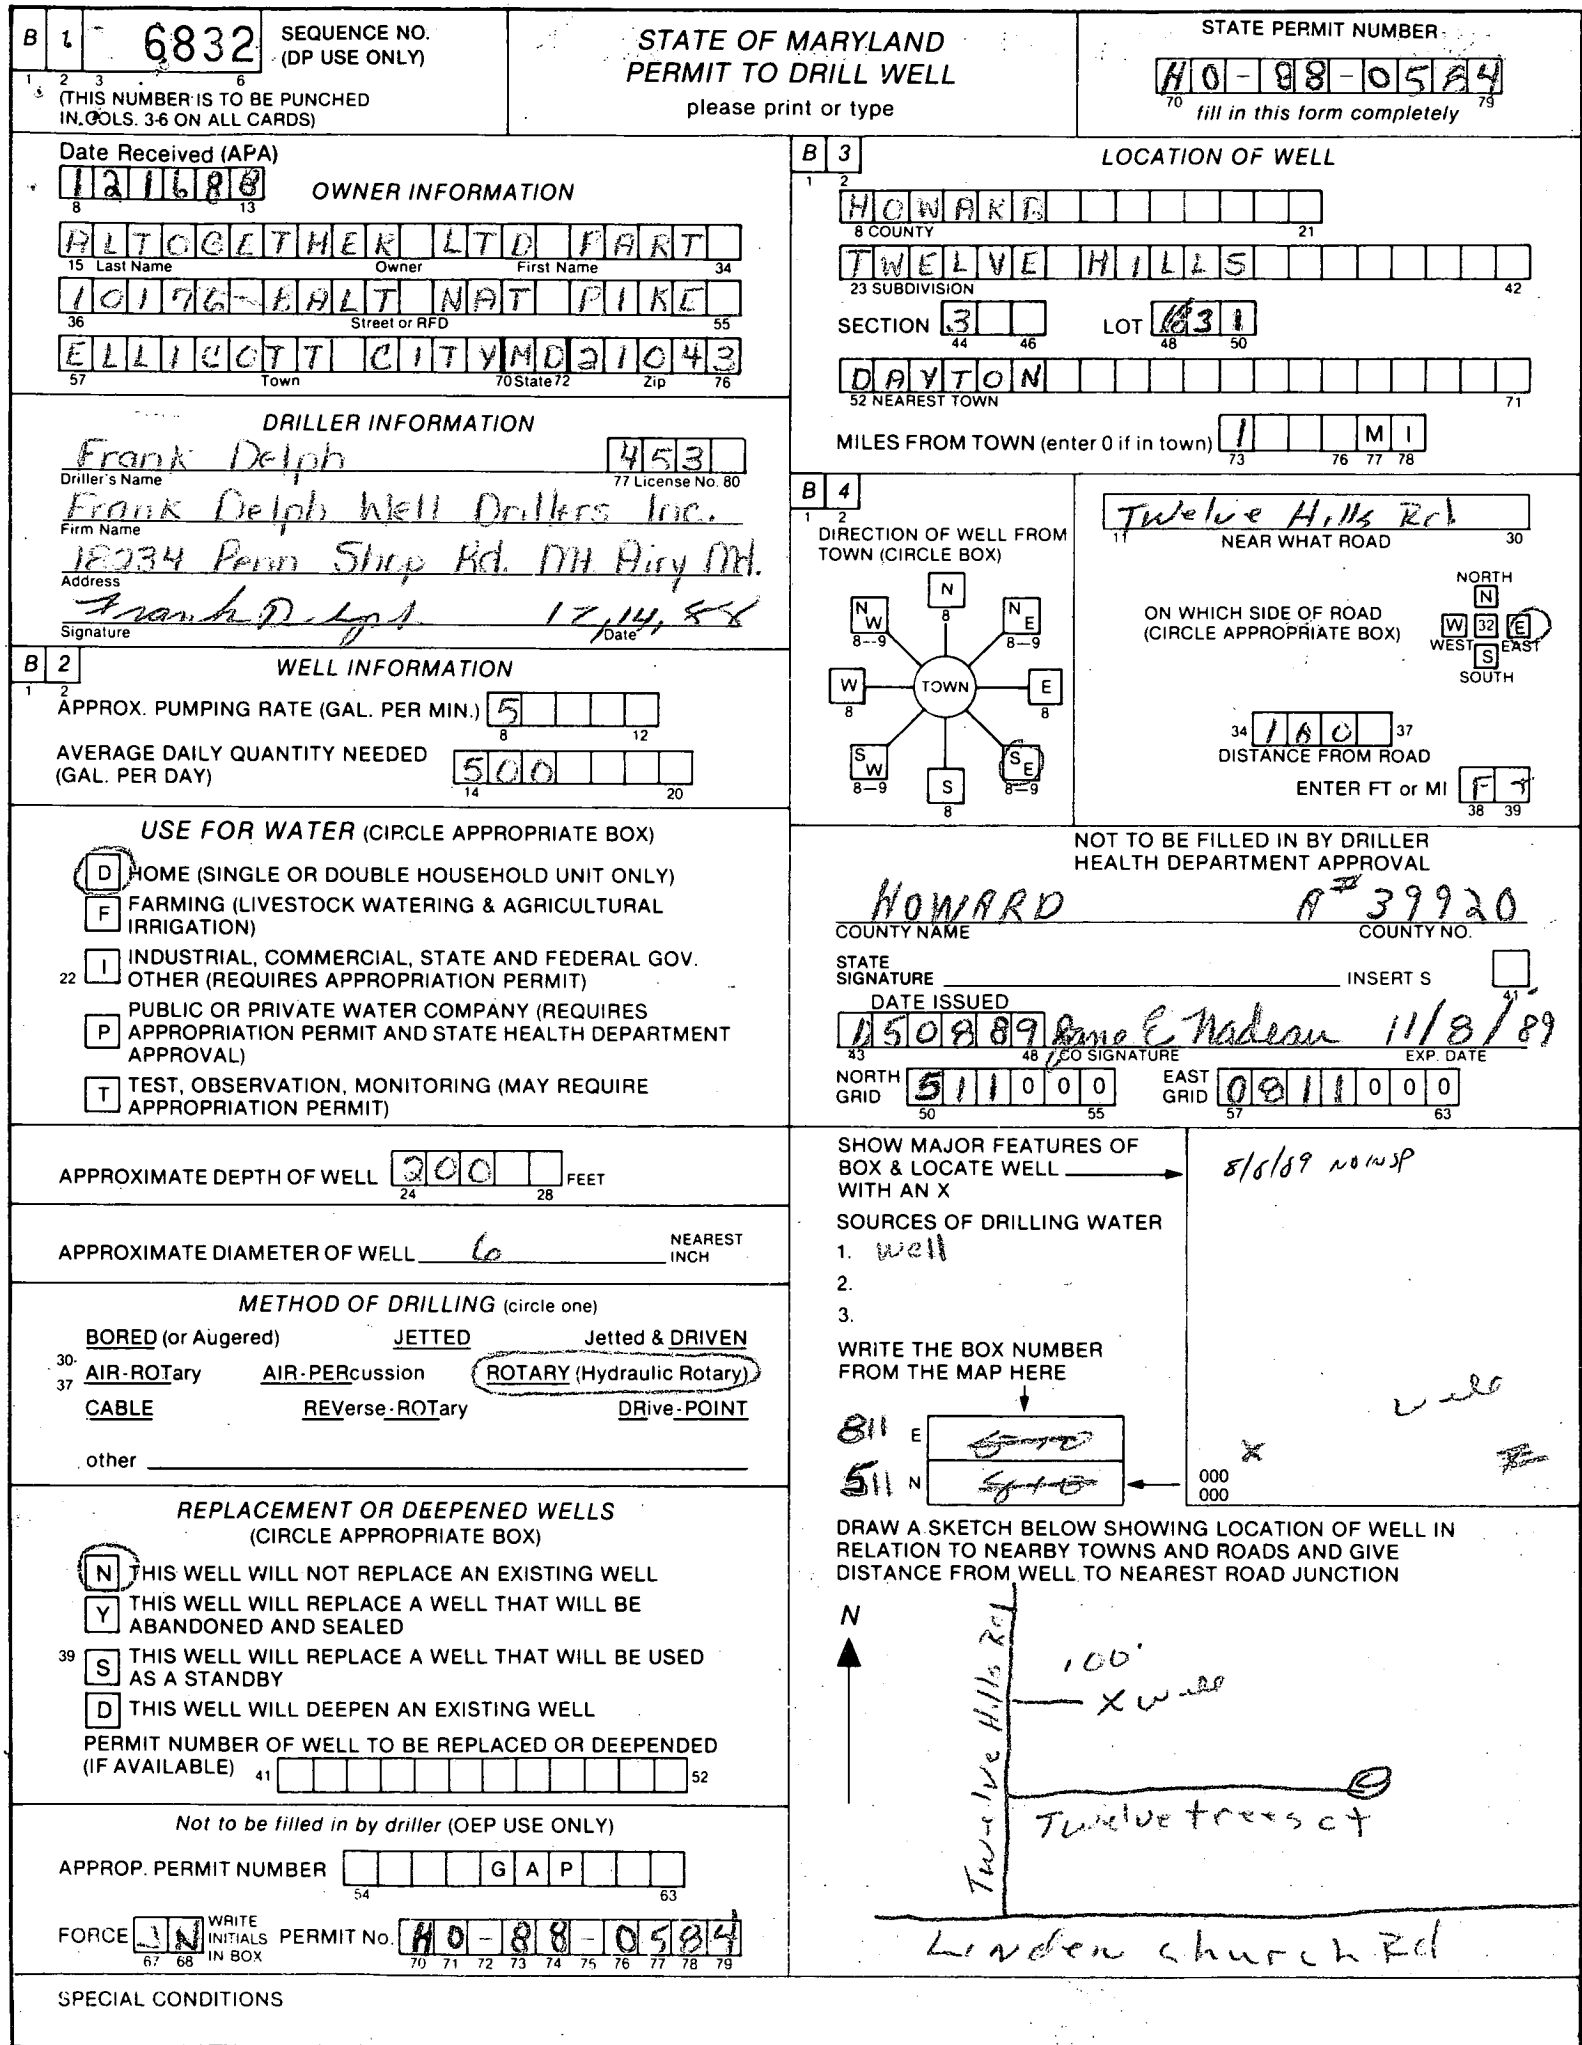 B 1 6832 SEQUENCE NO. (DP USE ONLY)
1 2 3 6
(THIS NUMBER IS TO BE PUNCHED
IN COLS. 3-6 ON ALL CARDS)
STATE OF MARYLAND
PERMIT TO DRILL WELL
please print or type
STATE PERMIT NUMBER
HO-88-0584
70 79
fill in this form completely
Date Received (APA)
121688
8 13
OWNER INFORMATION
ALTOGETHER LTD PART
15 Last Name Owner First Name 34
10176-BALT NAT PIKE
36 Street or RFD 55
ELLICOTT CITY MD 21043
57 Town 70 State 72 Zip 76
DRILLER INFORMATION
Frank Delph 453
Driller's Name 77 License No. 80
Frank Delph Well Drillers Inc.
Firm Name
Penn Shop Rd. Mt Airy Md.
Address
Frank Delph 12,14,88
Signature Date
B 2 WELL INFORMATION
1 2
APPROX. PUMPING RATE (GAL. PER MIN.) 5
8 12
AVERAGE DAILY QUANTITY NEEDED
(GAL. PER DAY) 500
14 20
USE FOR WATER (CIRCLE APPROPRIATE BOX)
D HOME (SINGLE OR DOUBLE HOUSEHOLD UNIT ONLY)
F FARMING (LIVESTOCK WATERING & AGRICULTURAL
IRRIGATION)
22 I INDUSTRIAL, COMMERCIAL, STATE AND FEDERAL GOV.
OTHER (REQUIRES APPROPRIATION PERMIT)
P PUBLIC OR PRIVATE WATER COMPANY (REQUIRES
APPROPRIATION PERMIT AND STATE HEALTH DEPARTMENT
APPROVAL)
T TEST, OBSERVATION, MONITORING (MAY REQUIRE
APPROPRIATION PERMIT)
APPROXIMATE DEPTH OF WELL 200 FEET
24 28
APPROXIMATE DIAMETER OF WELL 6 NEAREST INCH
METHOD OF DRILLING (circle one)
BORED (or Augered) JETTED Jetted & DRIVEN
30-37 AIR-ROTary AIR-PERcussion ROTARY (Hydraulic Rotary)
CABLE REVerse-ROTary DRive-POINT
other
REPLACEMENT OR DEEPENED WELLS
(CIRCLE APPROPRIATE BOX)
N THIS WELL WILL NOT REPLACE AN EXISTING WELL
Y THIS WELL WILL REPLACE A WELL THAT WILL BE
ABANDONED AND SEALED
39 S THIS WELL WILL REPLACE A WELL THAT WILL BE USED
AS A STANDBY
D THIS WELL WILL DEEPEN AN EXISTING WELL
PERMIT NUMBER OF WELL TO BE REPLACED OR DEEPENDED
(IF AVAILABLE) 41 52
Not to be filled in by driller (OEP USE ONLY)
APPROP. PERMIT NUMBER G A P
54 63
FORCE JN WRITE INITIALS IN BOX PERMIT No. HO-88-0584
67 68 70 71 72 73 74 75 76 77 78 79
SPECIAL CONDITIONS
B 3 LOCATION OF WELL
1 2
HOWARD
8 COUNTY 21
TWELVE HILLS
23 SUBDIVISION 42
SECTION 3 LOT 31
44 46 48 50
DAYTON
52 NEAREST TOWN 71
MILES FROM TOWN (enter 0 if in town) 1 M I
73 76 77 78
B 4
1 2
DIRECTION OF WELL FROM
TOWN (CIRCLE BOX)
N
8
NW NE
8--9 8--9
W TOWN E
8 8
SW SE
8--9 8--9
S
8
Twelve Hills Rd
11 NEAR WHAT ROAD 30
ON WHICH SIDE OF ROAD
(CIRCLE APPROPRIATE BOX)
NORTH
N
W 32 E
WEST EAST
S
SOUTH
34 37
DISTANCE FROM ROAD
ENTER FT or MI FT
38 39
NOT TO BE FILLED IN BY DRILLER
HEALTH DEPARTMENT APPROVAL
HOWARD A# 39920
COUNTY NAME COUNTY NO.
STATE
SIGNATURE INSERT S
41
DATE ISSUED
050889 Jane E Nadeau 11/8/89
43 48 CO SIGNATURE EXP. DATE
NORTH GRID 511000 EAST GRID 0811000
50 55 57 63
SHOW MAJOR FEATURES OF
BOX & LOCATE WELL
WITH AN X
8/8/89 NO INSP
SOURCES OF DRILLING WATER
1. Well
2.
3.
WRITE THE BOX NUMBER
FROM THE MAP HERE
811 E
511 N
well
X
000
000
DRAW A SKETCH BELOW SHOWING LOCATION OF WELL IN
RELATION TO NEARBY TOWNS AND ROADS AND GIVE
DISTANCE FROM WELL TO NEAREST ROAD JUNCTION
N
Twelve Hills Rd
100'
X well
Twelve trees ct
Linden church Rd